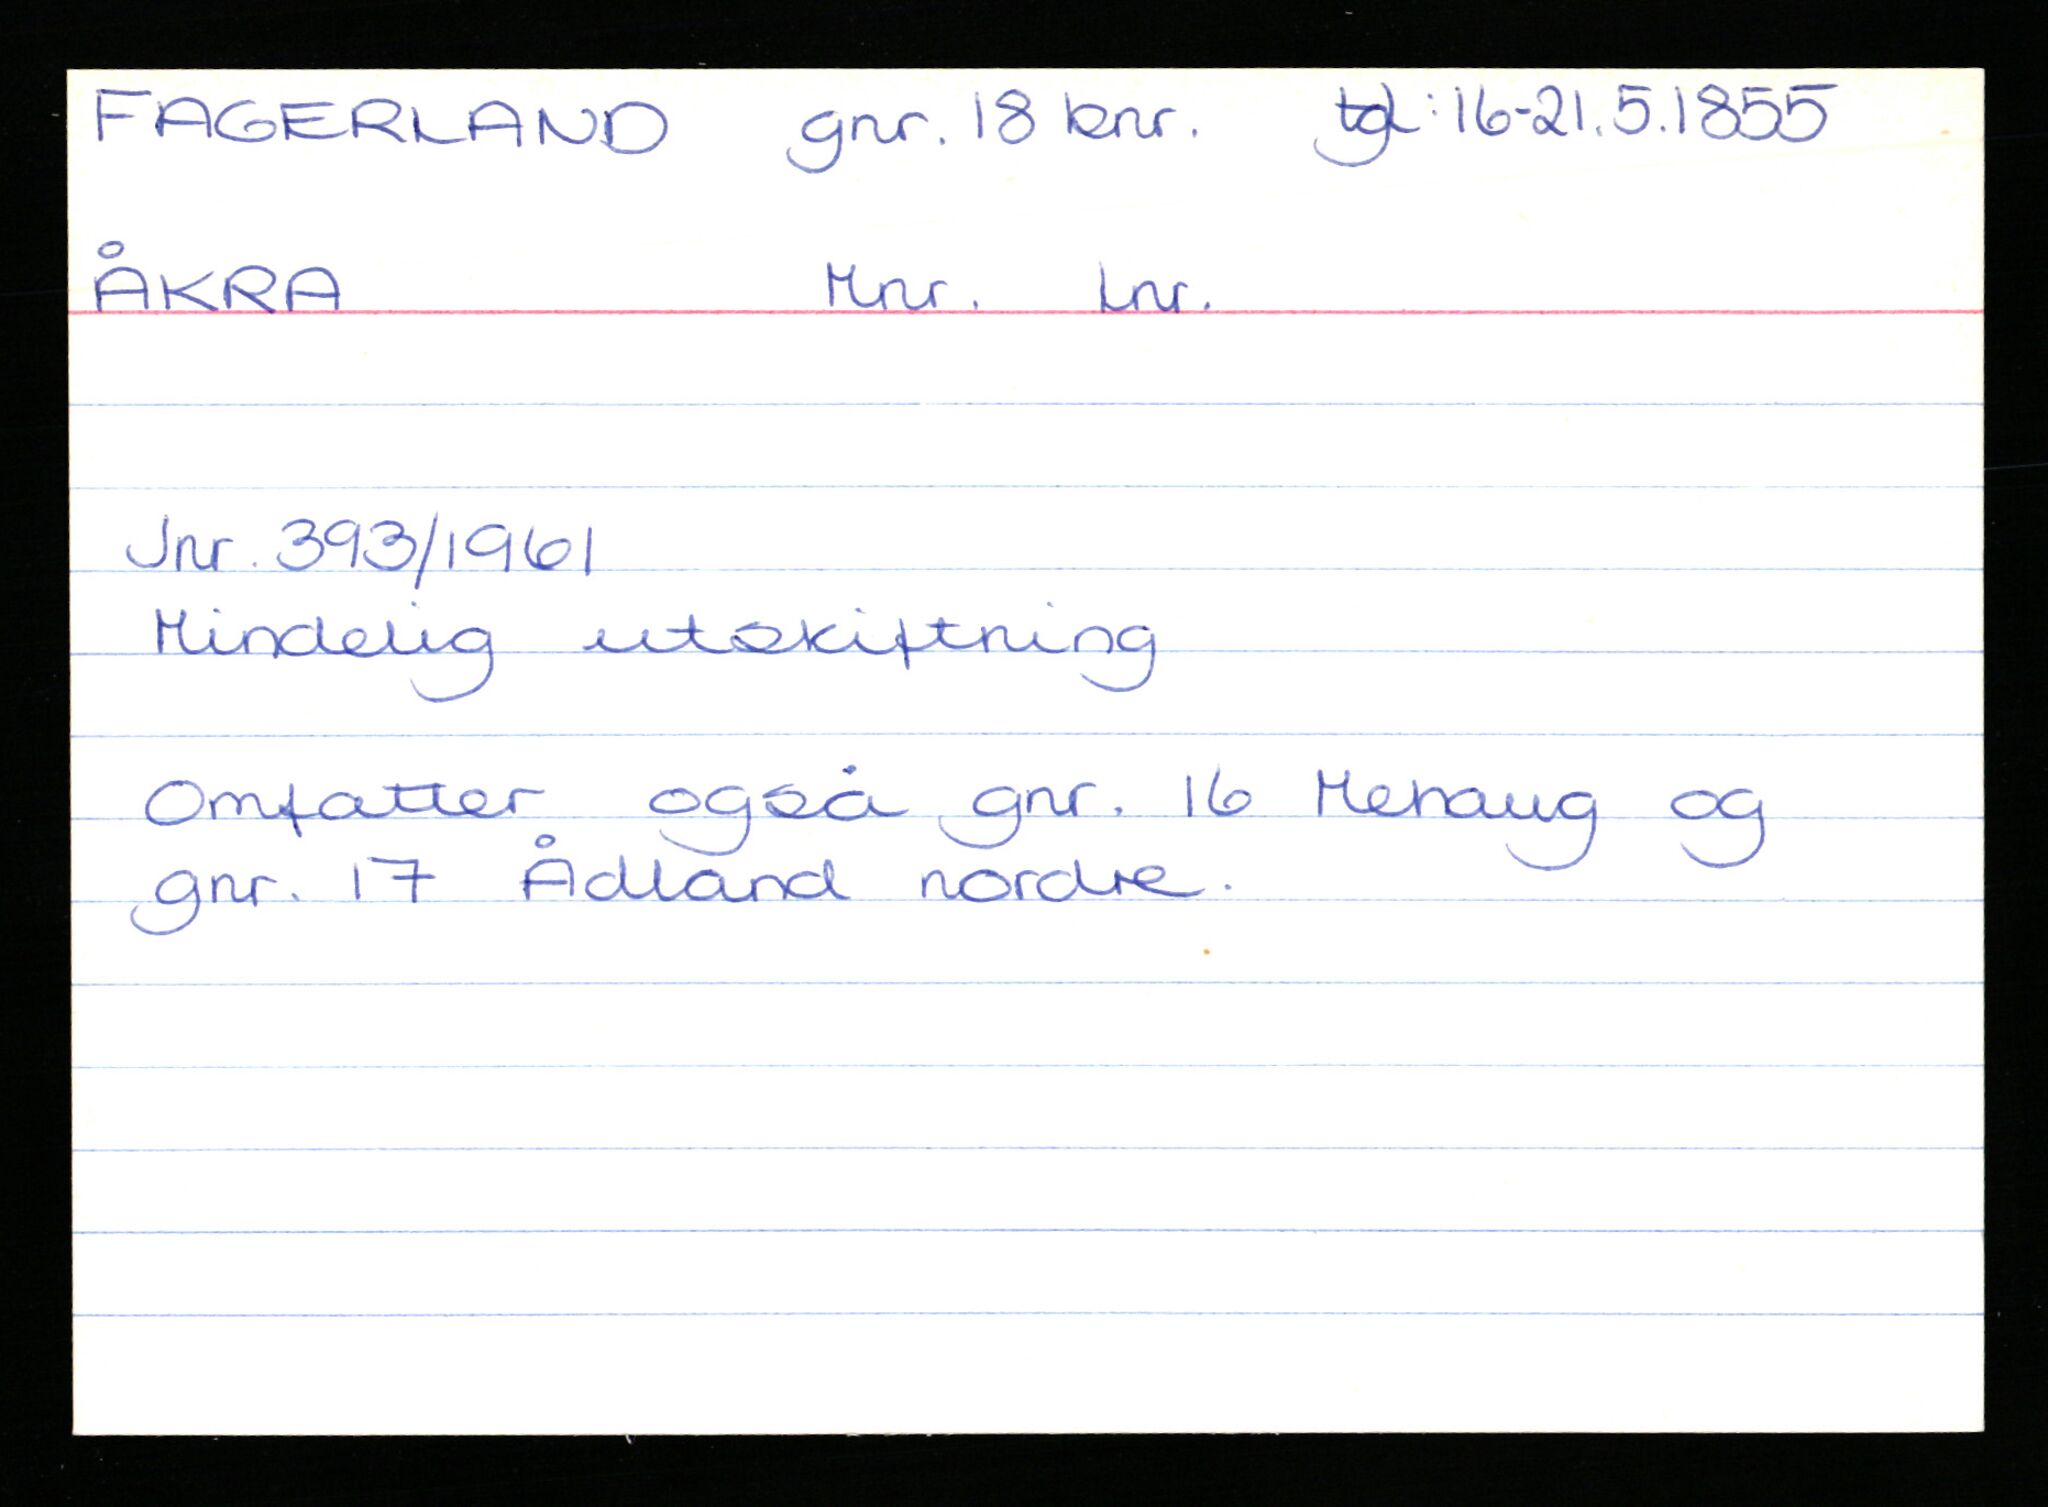 FAGERLAND gnr. 18 bnr. tgl: 16-21.5.1855
ÅKRA Mnr. Lnr.
Jnr. 393/1961
Mindelig utskiftning
Omfatter også gnr. 16 Mehaug og
gnr. 17 Ådland nordre.